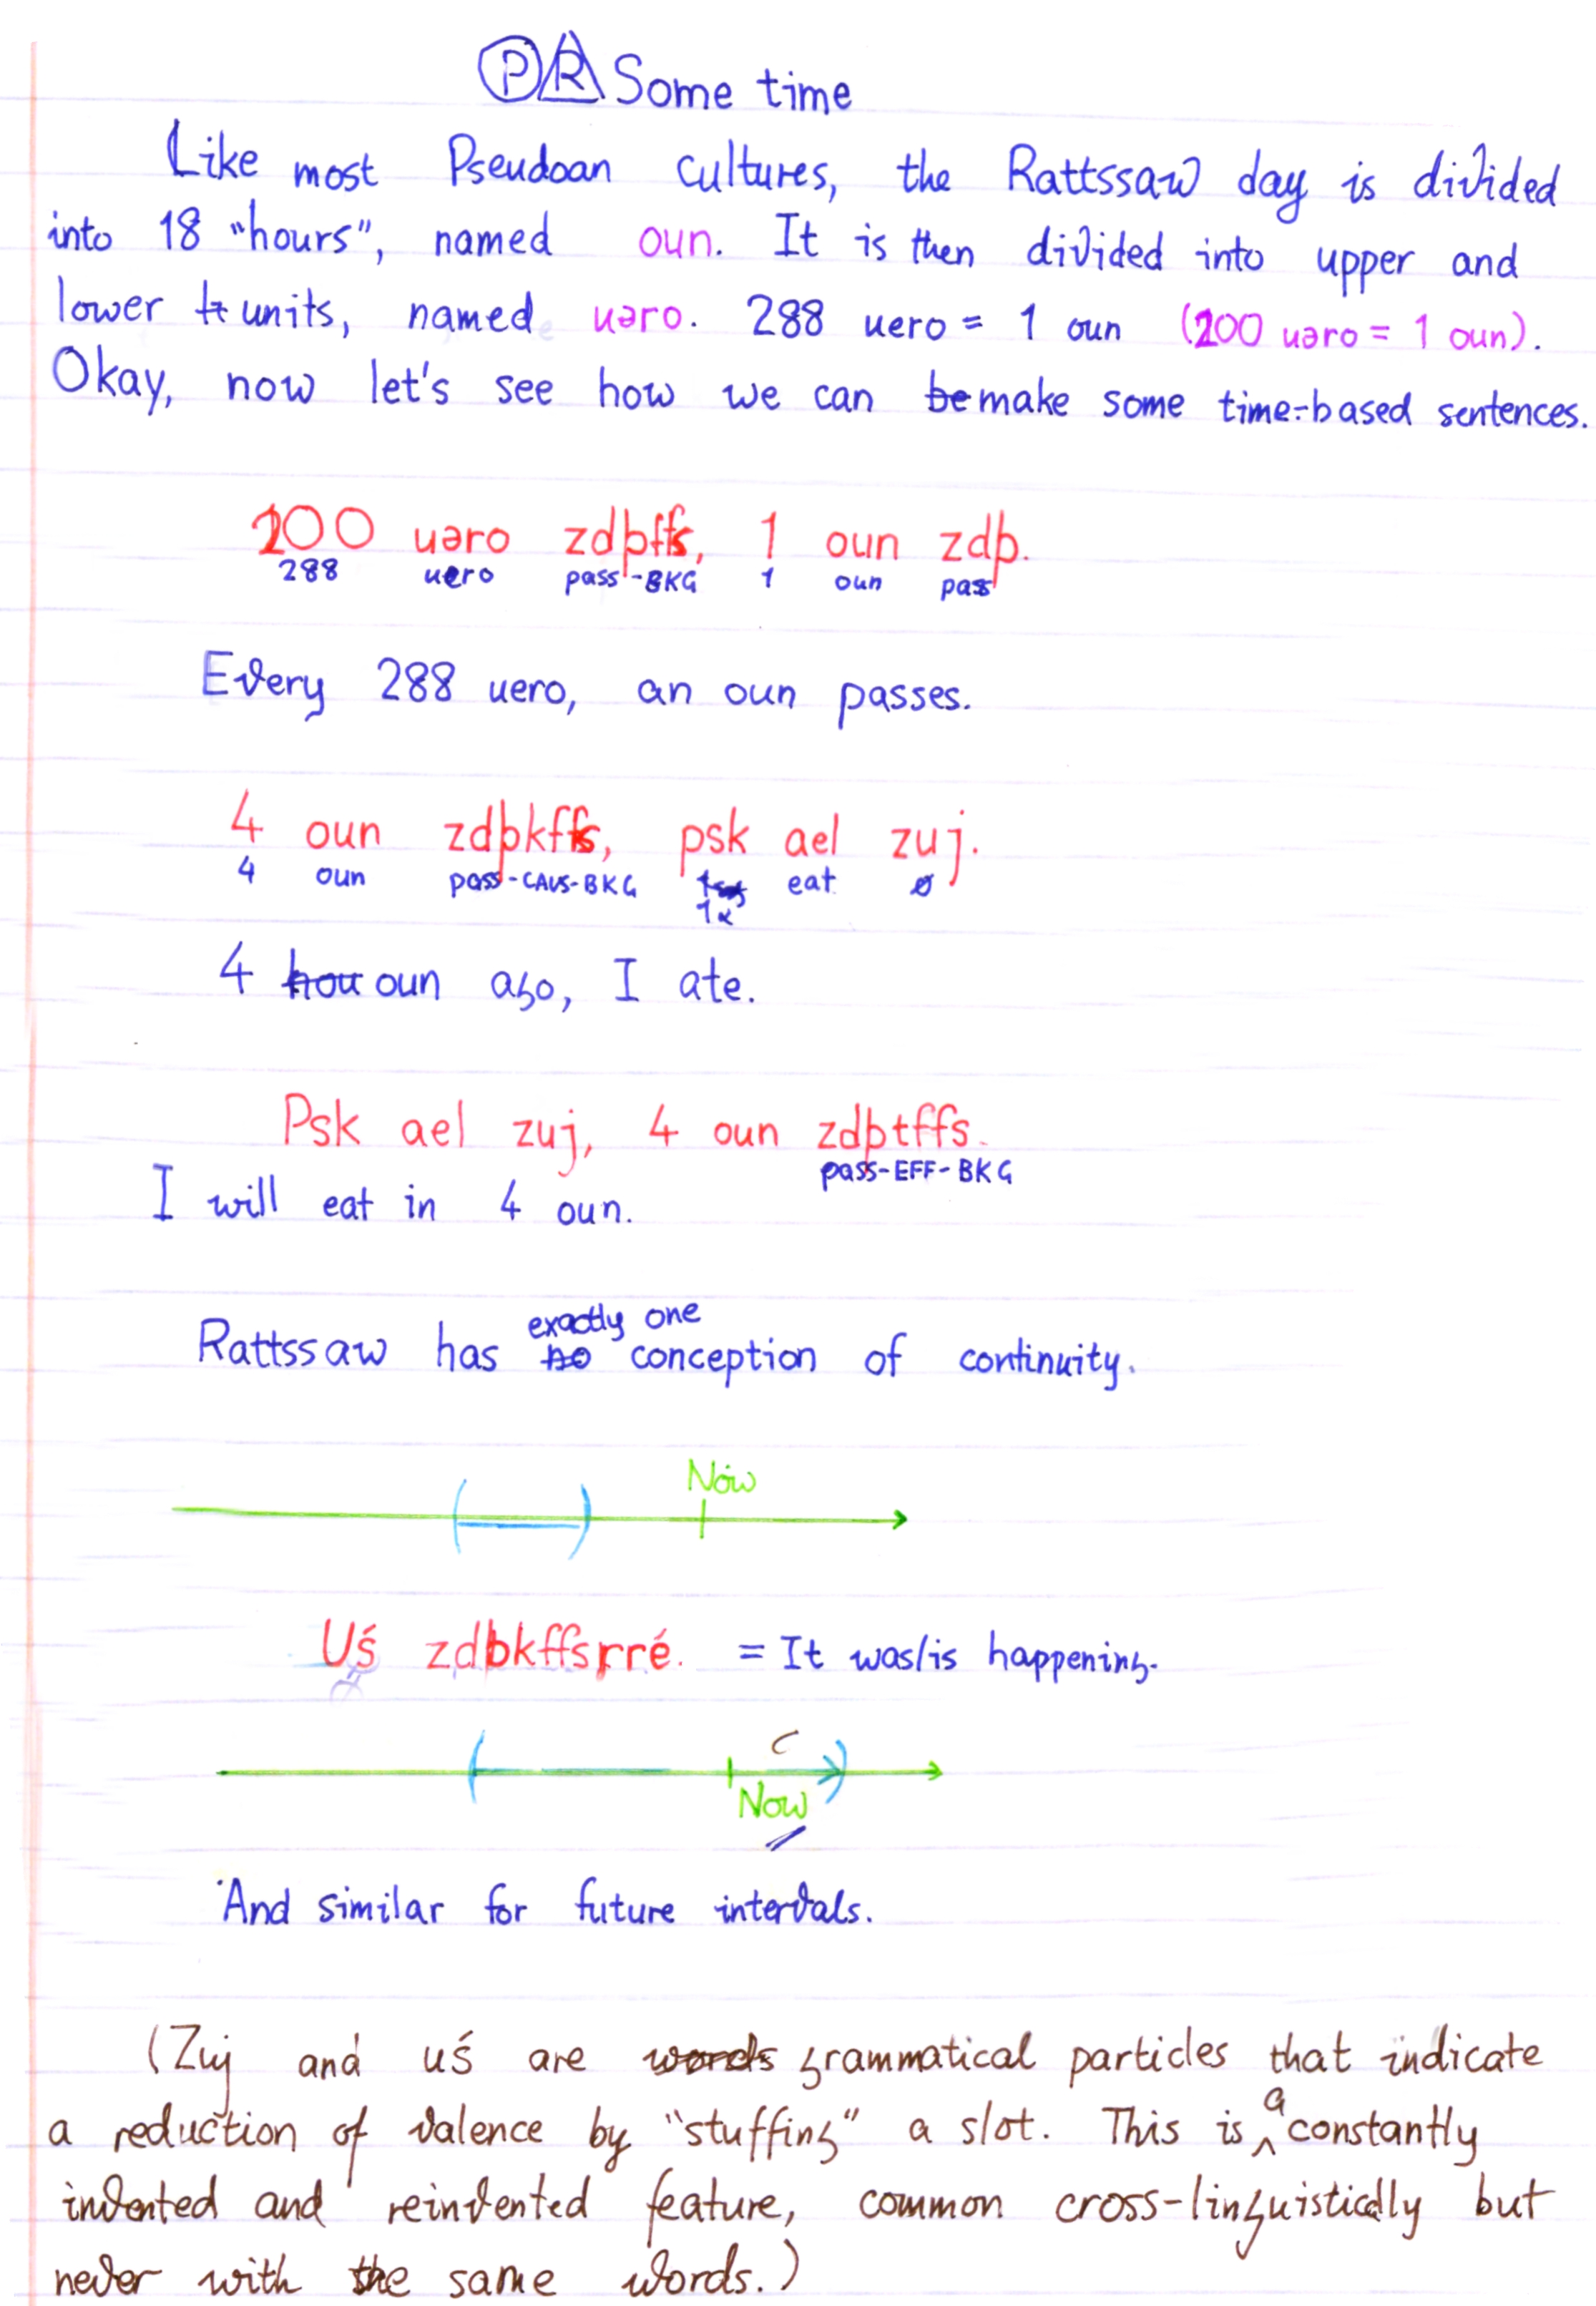 PR Some time
Like most Pseudoan cultures, the Rattssaw day is divided
into 18 "hours", named oun. It is then divided into upper and
lower units, named uəro. 288 uero = 1 oun (200 uəro = 1 oun).
Okay, now let's see how we can make some time-based sentences.
200 uəro zdþffs, 1 oun zdþ.
288 uero pass-BKG 1 oun pass
Every 288 uero, an oun passes.
4 oun zdþkffs, psk ael zuj.
4 oun pass-CAUS-BKG eat ∅
4 oun ago, I ate.
Psk ael zuj, 4 oun zdþtffs.
pass-EFF-BKG
I will eat in 4 oun.
exactly one
Rattssaw has no conception of continuity.
Now
Uś zdþkffsrré. = It was/is happening.
C
Now
And similar for future intervals.
(Zuj and uś are words grammatical particles that indicate
a reduction of valence by "stuffing" a slot. This is a constantly
invented and reinvented feature, common cross-linguistically but
never with the same words.)